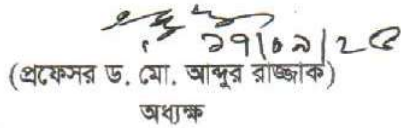 ১৭/০৯/২৫
(প্রফেসর ড. মো. আব্দুর রাজ্জাক)
অধ্যক্ষ